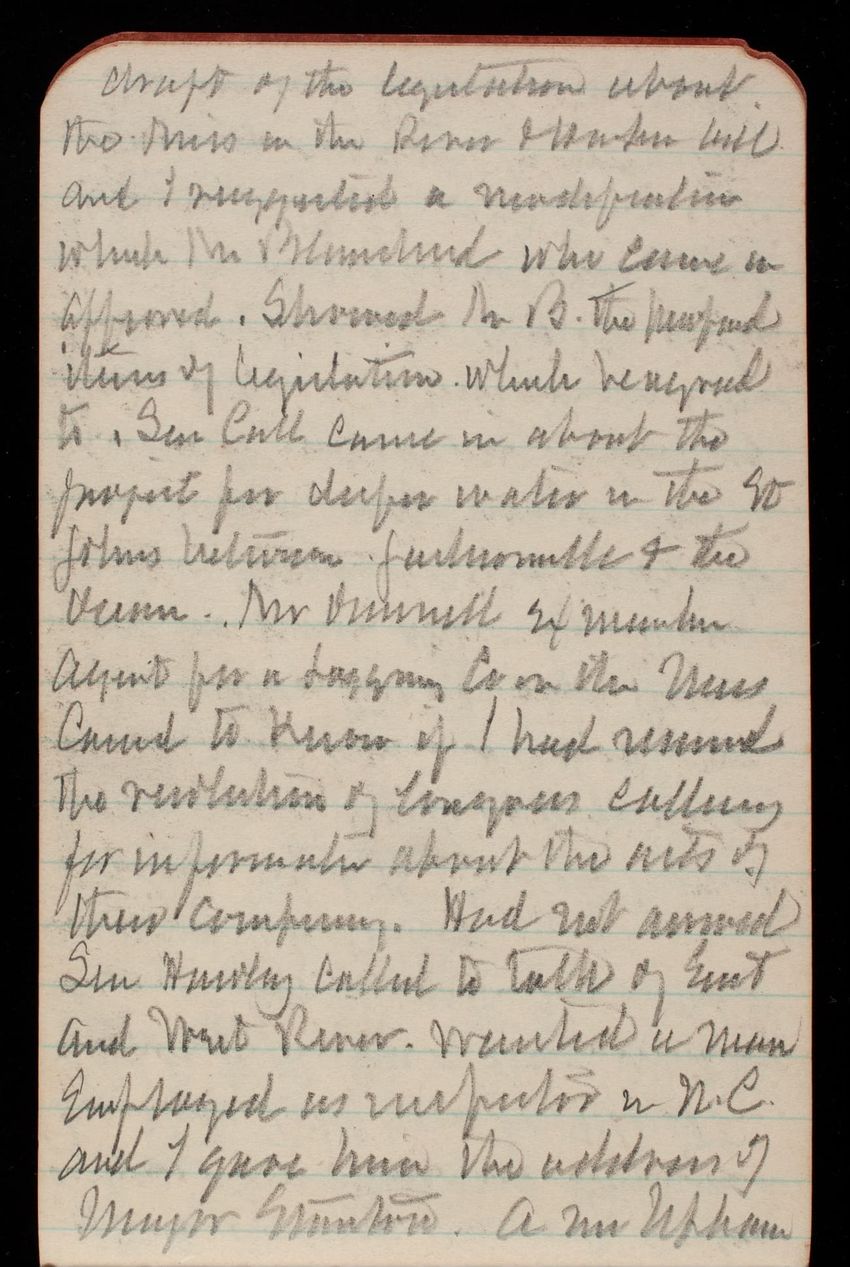 draft of the legislation about
the Miss in the River & Harbor bill
and I suggested a modification
which Mr Blanchard who came in
approved. Showed Mr B. the proposed
items of legislation which he agreed
to. Sen Call came in about the
project for deeper water in the St
Johns between Jacksonville & the
Ocean. Mr Dunnell ex member
Agent for a Co on the Miss
Called to know if I had received
the resolution of Congress calling
for information about the acts of
their company. Had not arrived
Sen Hawley called to talk of East
and West River. Wanted a man
Employed as inspector in N.C.
and I gave him the address of
Major Stanton. A Mr Upham